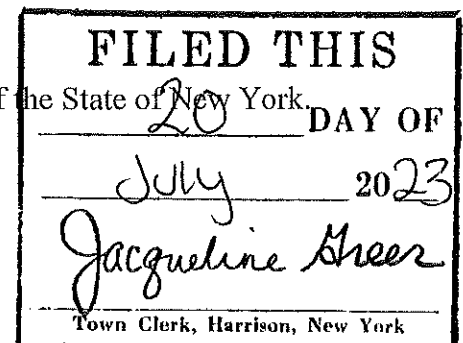 FILED THIS
f the State of New York.
20 DAY OF
July 2023
Jacqueline Greer
Town Clerk, Harrison, New York